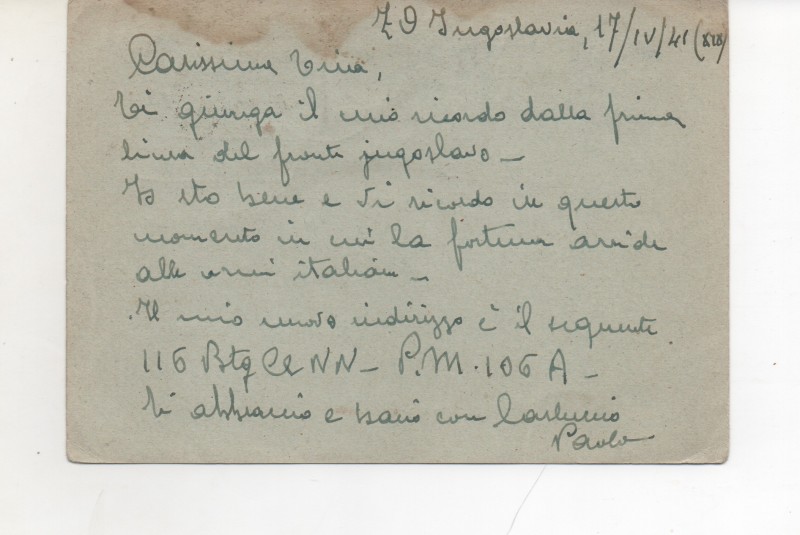 ZO Jugoslavia, 17/IV/41 (XIX)
Carissima Tina,
Vi giunga il mio ricordo dalla prima
linea del fronte jugoslavo –
Io sto bene e vi ricordo in questo
momento in cui la fortuna arride
alle armi italiane –
Il mio nuovo indirizzo è il seguente
116 Btg CC NN – P.M. 106 A –
Vi abbraccio e bacio con
Paolo